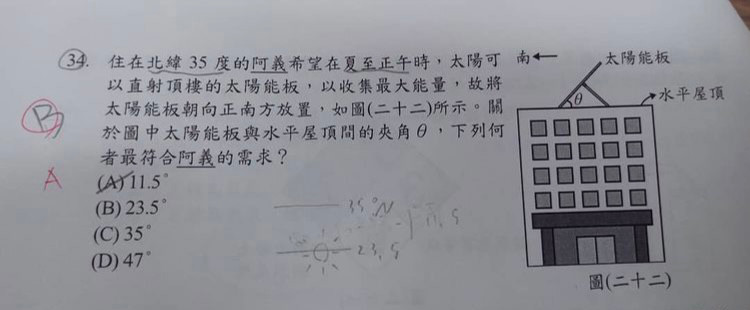 34. 住在北緯 35 度的阿義希望在夏至正午時,太陽可
以直射頂樓的太陽能板,以收集最大能量,故將
太陽能板朝向正南方放置,如圖(二十二)所示。關
於圖中太陽能板與水平屋頂間的夾角θ,下列何
者最符合阿義的需求?
(A) 11.5°
(B) 23.5°
(C) 35°
(D) 47°
B
A
35°N
23.5
11.5
南←
太陽能板
水平屋頂
θ
圖(二十二)